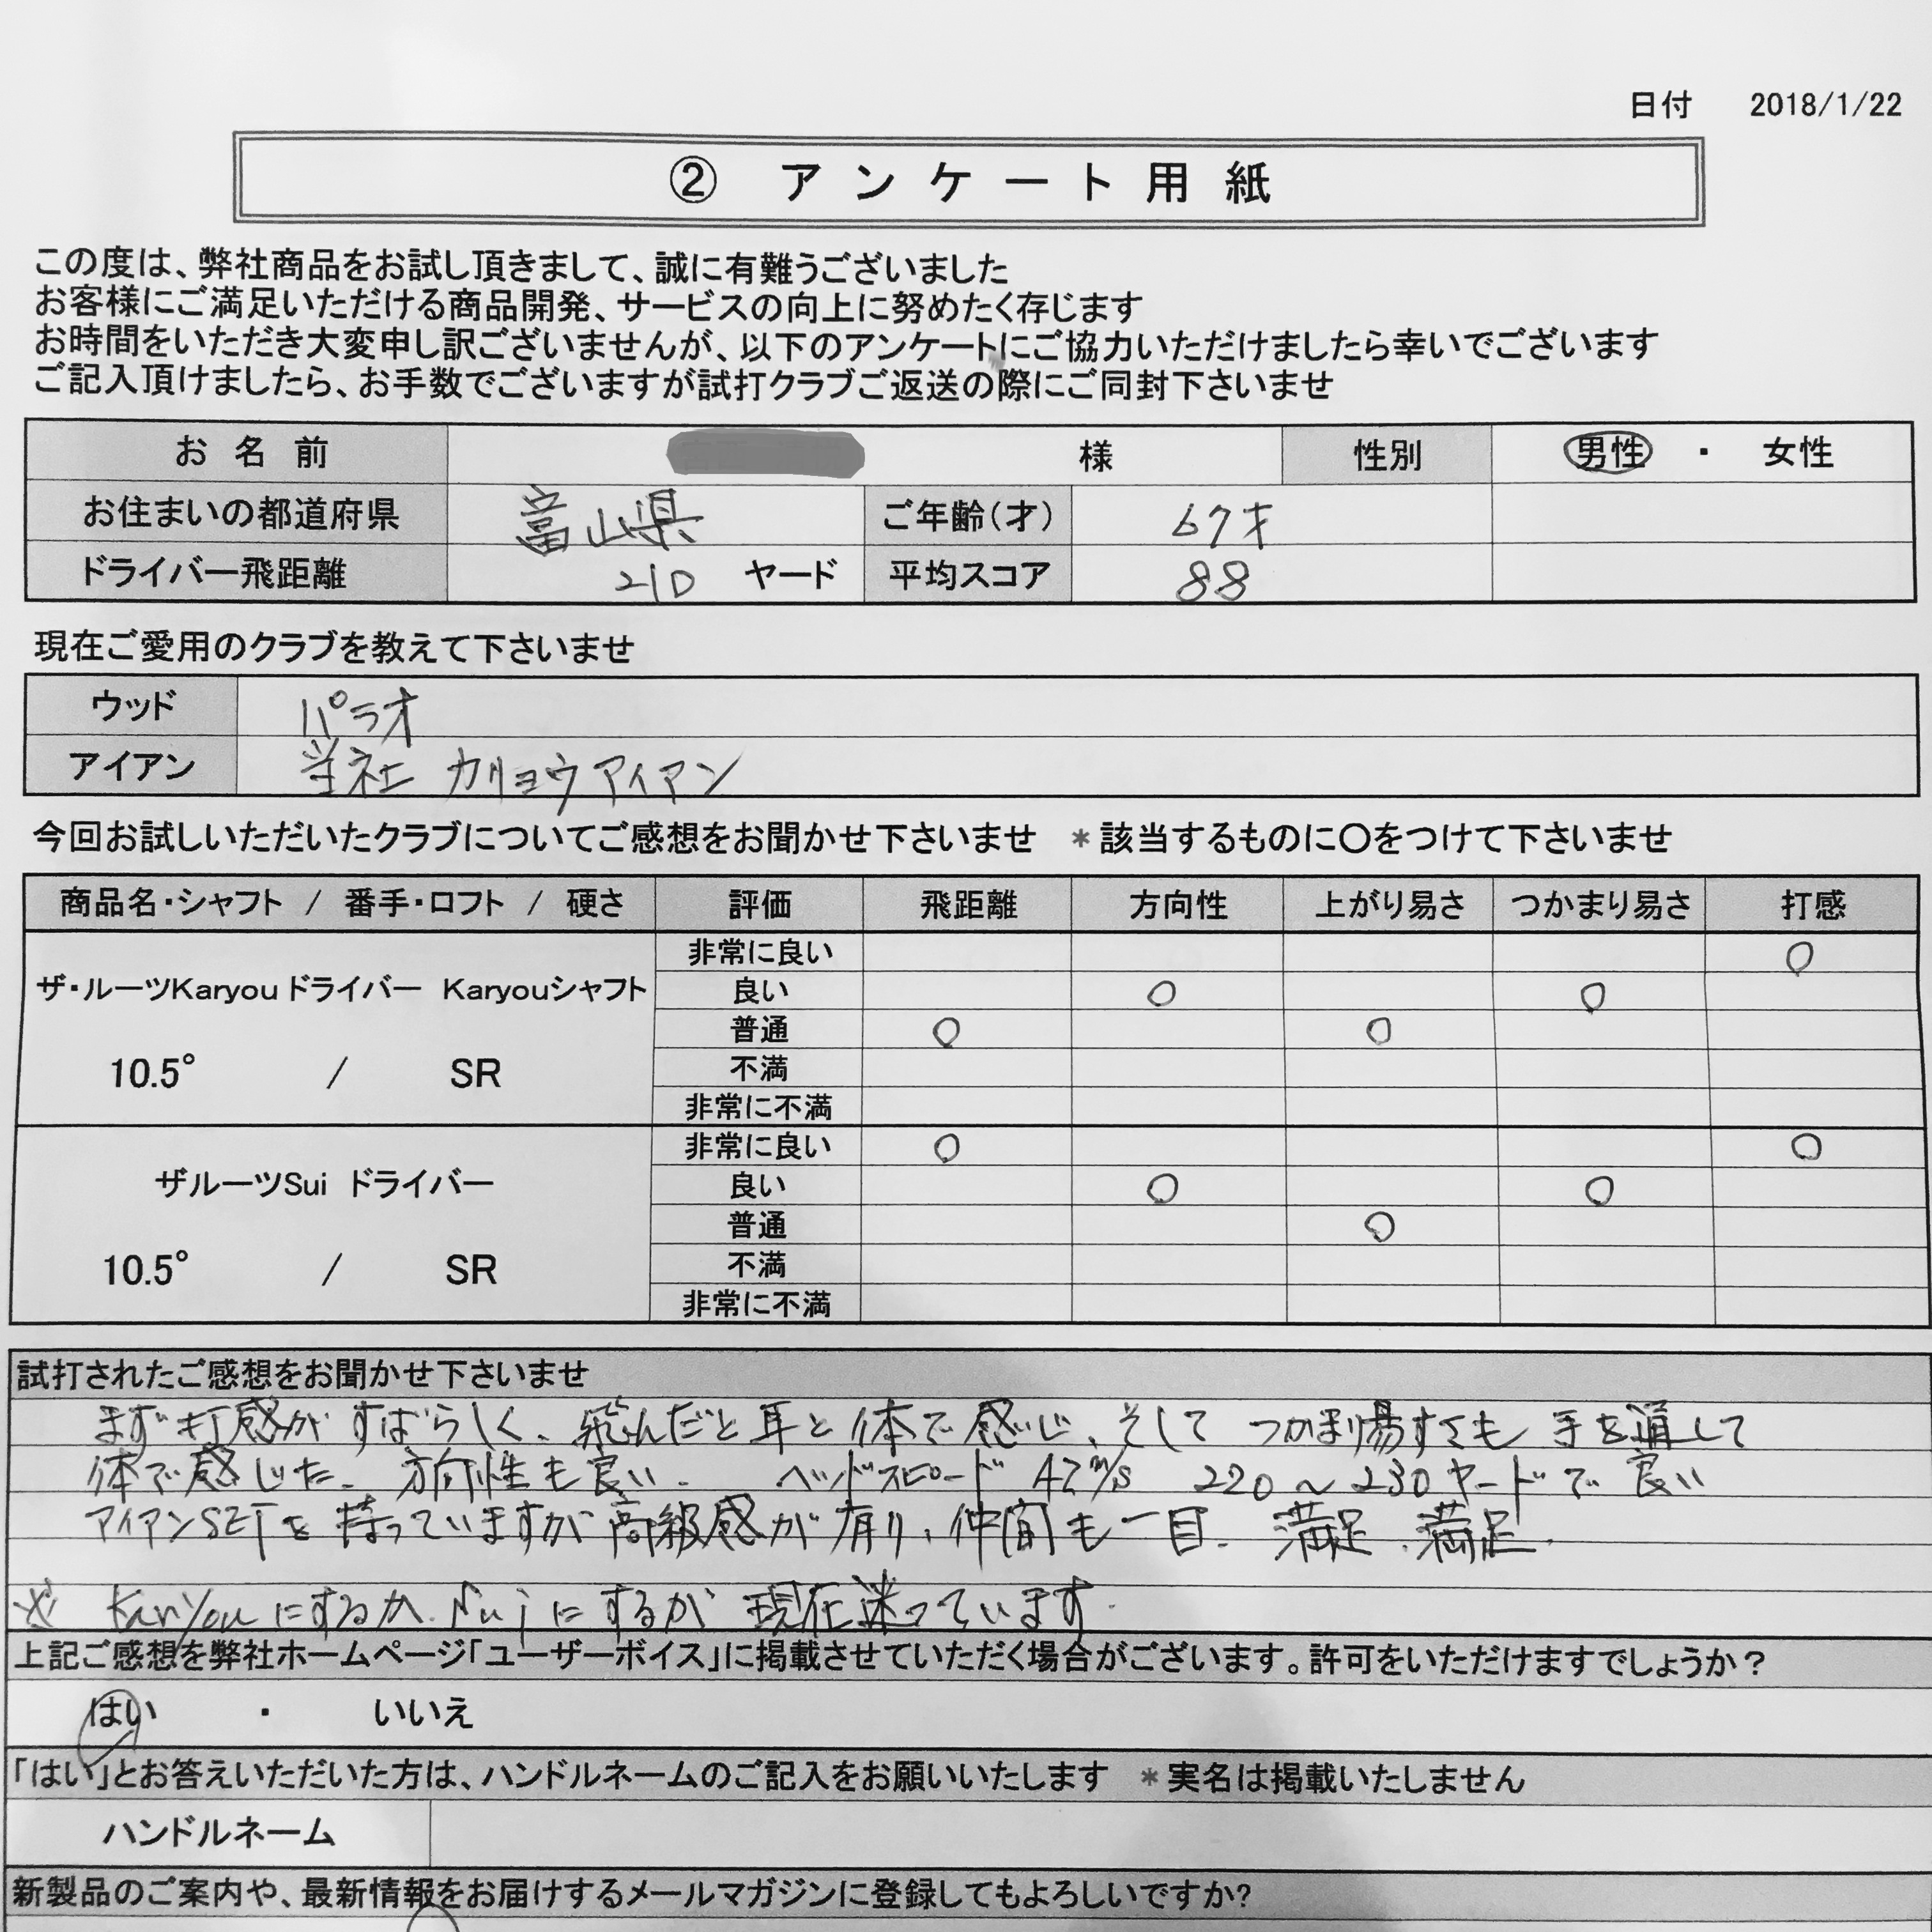 日付 2018/1/22
② アンケート用紙
この度は、弊社商品をお試し頂きまして、誠に有難うございました
お客様にご満足いただける商品開発、サービスの向上に努めたく存じます
お時間をいただき大変申し訳ございませんが、以下のアンケートにご協力いただけましたら幸いでございます
ご記入頂けましたら、お手数でございますが試打クラブご返送の際にご同封下さいませ
お名前 様 性別 男性 ・ 女性
お住まいの都道府県 富山県 ご年齢(才) 67才
ドライバー飛距離 210 ヤード 平均スコア 88
現在ご愛用のクラブを教えて下さいませ
ウッド パラオ
アイアン 当社 カリョウアイアン
今回お試しいただいたクラブについてご感想をお聞かせ下さいませ *該当するものに〇をつけて下さいませ
商品名・シャフト / 番手・ロフト / 硬さ 評価 飛距離 方向性 上がり易さ つかまり易さ 打感
非常に良い ○
ザ・ルーツKaryouドライバー Karyouシャフト 良い ○ ○
普通 ○ ○
10.5° / SR 不満
非常に不満
非常に良い ○ ○
ザルーツSui ドライバー 良い ○ ○
普通 ○
10.5° / SR 不満
非常に不満
試打されたご感想をお聞かせ下さいませ
まず打感がすばらしく、飛んだと耳と体で感じ、そして つかまり易すさも 手を通して
体で感じた、方向性も良い. ヘッドスピード 42m/s 220～230ヤードで良い
アイアンSETを持っていますが高級感が有り、仲間も一目. 満足.満足.
※ Karyouにするか、Suiにするか 現在迷っています.
上記ご感想を弊社ホームページ「ユーザーボイス」に掲載させていただく場合がございます。許可をいただけますでしょうか？
はい ・ いいえ
「はい」とお答えいただいた方は、ハンドルネームのご記入をお願いいたします *実名は掲載いたしません
ハンドルネーム
新製品のご案内や、最新情報をお届けするメールマガジンに登録してもよろしいですか?